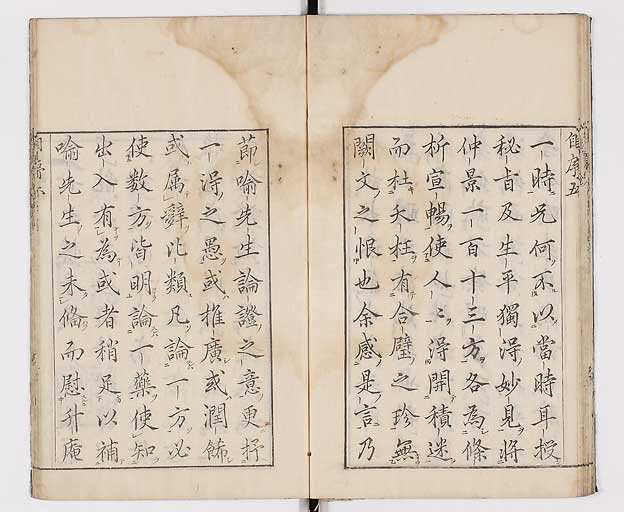 自序五
一時兄何不以當時耳授
秘旨及生平獨得妙見將
仲景一百十三方各為條
析宣暢使人〻得開積迷
而杜夭枉有合璧之珍無
闕文之恨也余感是言乃
節喻先生論證之意更抒
一得之愚或推廣或潤飾
或属辭比類凡論一方必
使數方皆明論一藥使知
出入有為或者稍足以補
喻先生之未備而慰升庵